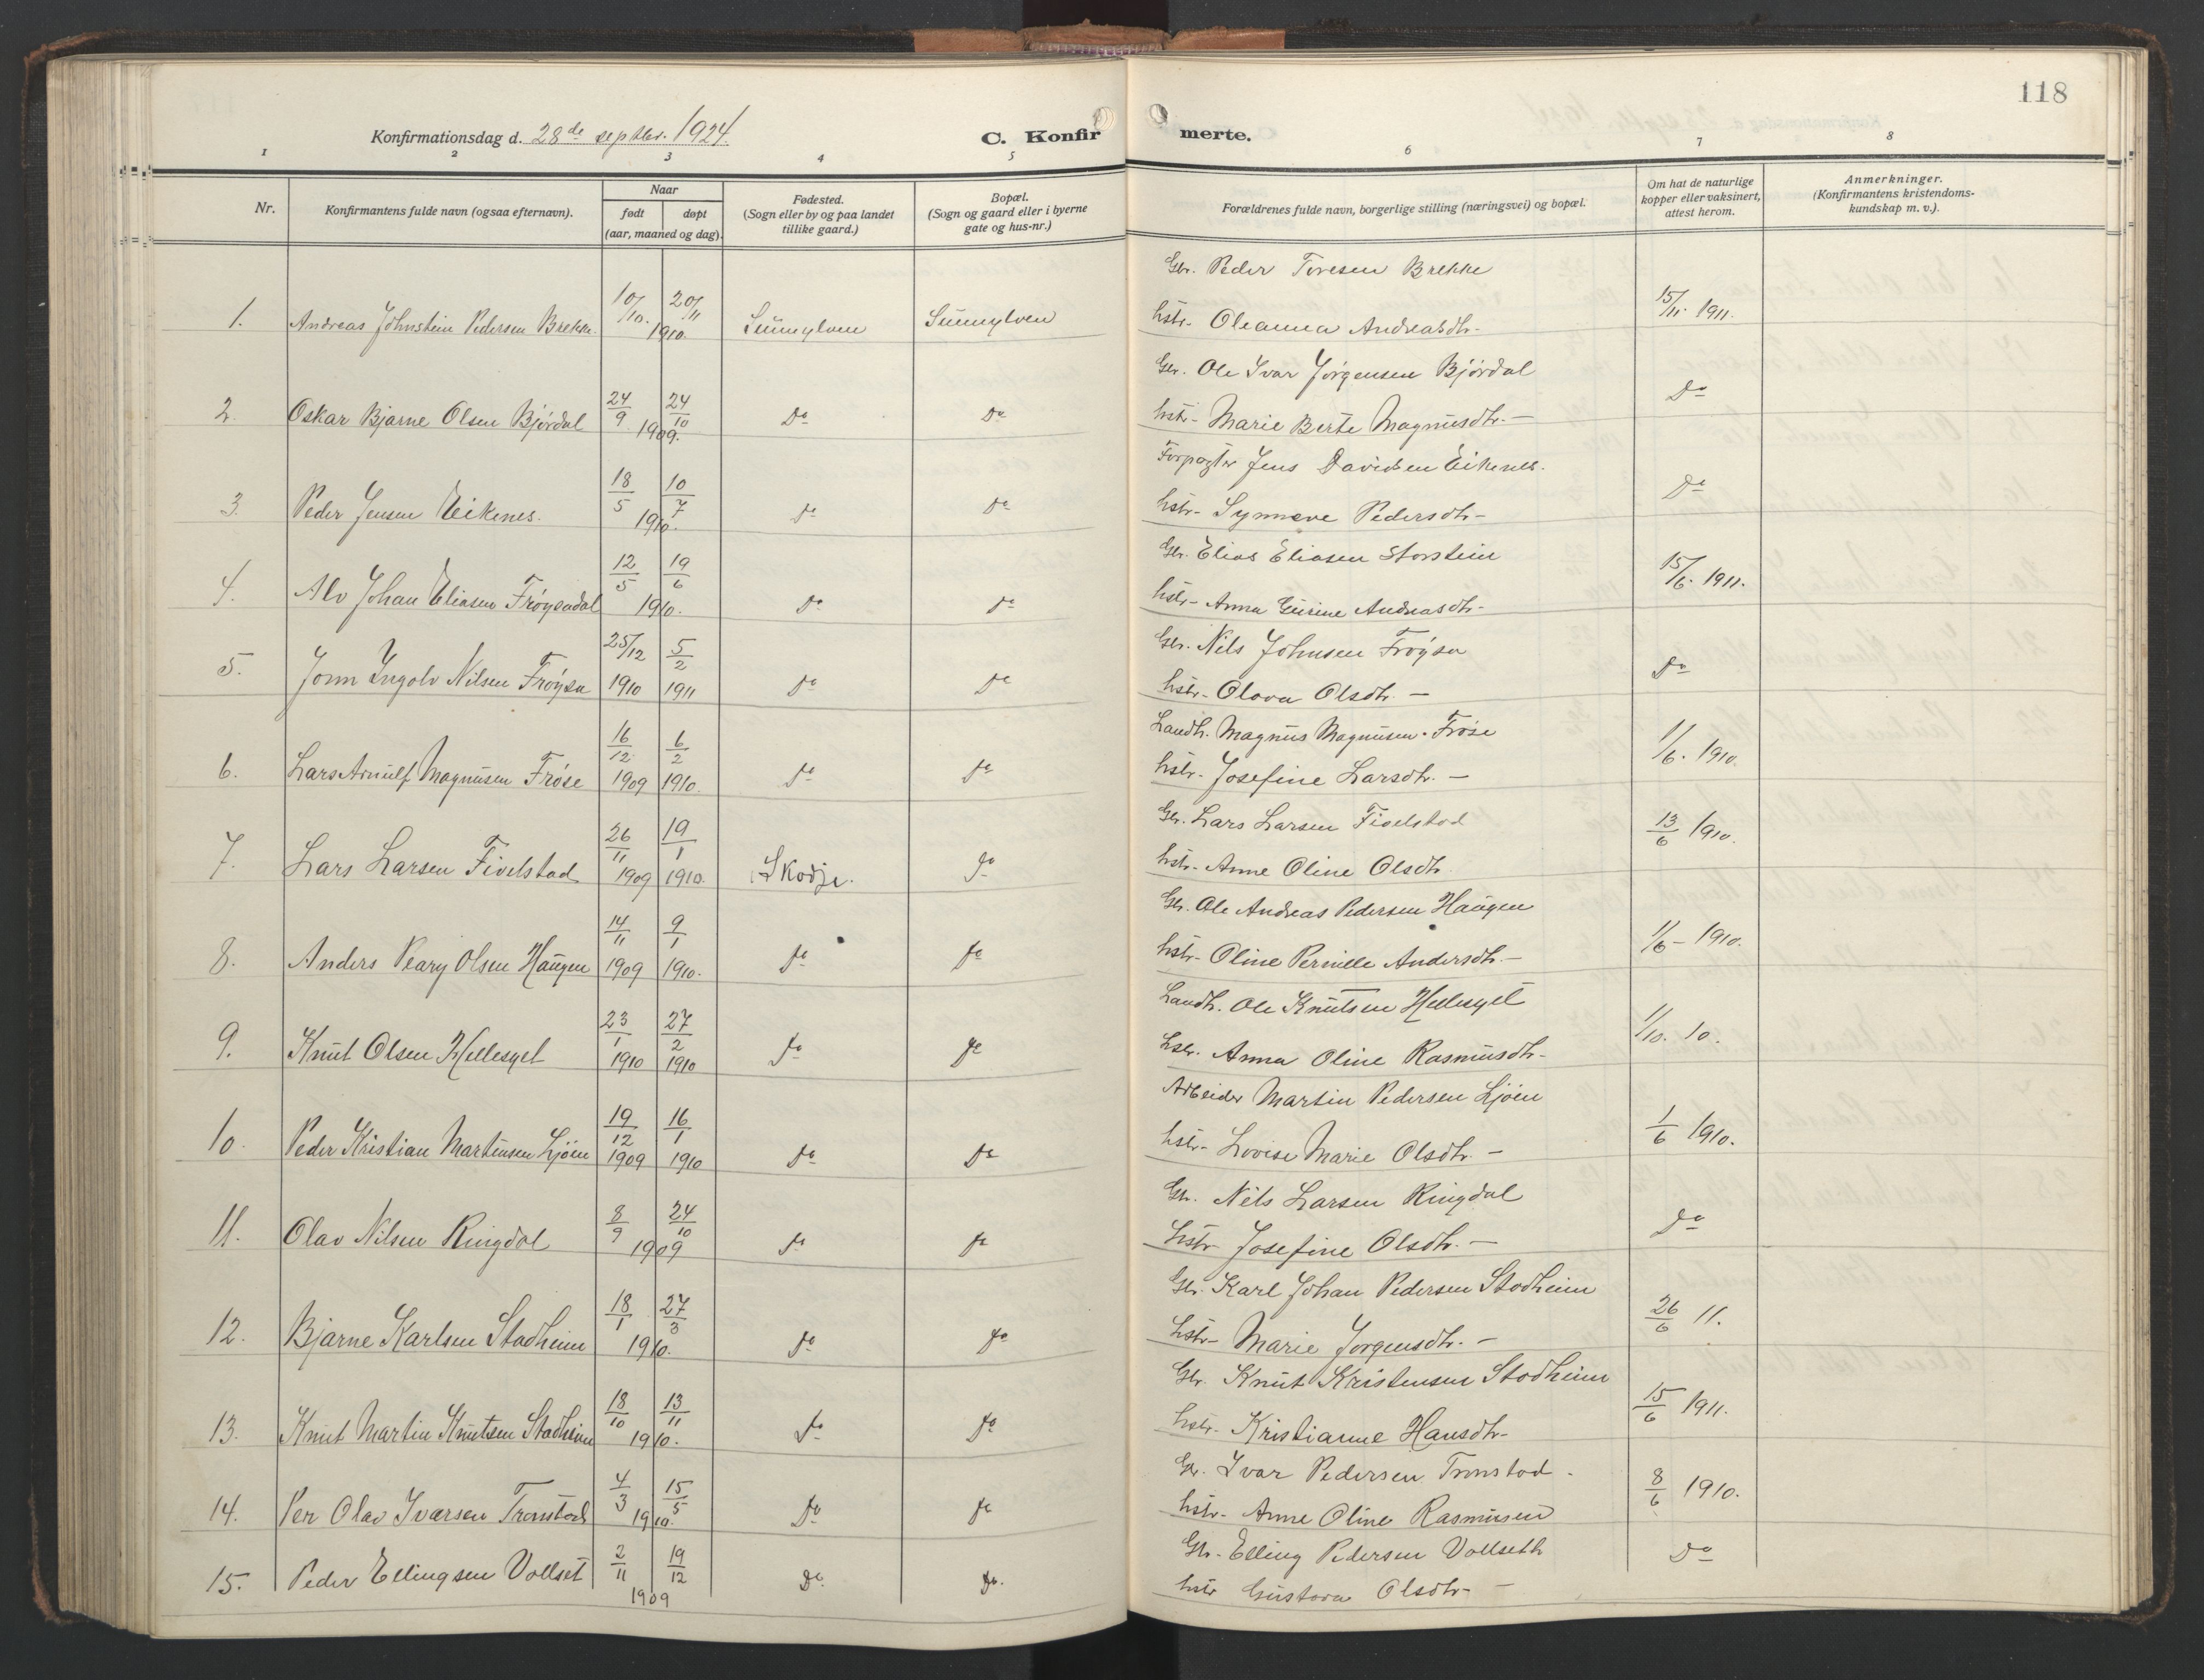 118
Konfirmationsdag d. 28de septbr. 1924.
C. Konfir
merte.
1 2 3 4 5 6 7 8
Nr.
Konfirmantens fulde navn (ogsaa efternavn).
Naar
født døpt
(aar, maaned og dag).
Fødested.
(Sogn eller by og paa landet
tillike gaard.)
Bopæl.
(Sogn og gaard eller i byerne
gate og hus-nr.)
Forældrenes fulde navn, borgerlige stilling (næringsvei) og bopæl.
Om hat de naturlige
kopper eller vaksinert,
attest herom.
Anmerkninger.
(Konfirmantens kristendoms-
kundskap m. v.).
Gbr. Peder Toresen Brekke
1. Andreas Johnstein Pedersen Brekke. 10/10. 20/11 1910. Sunnylven Sunnylven
hstr. Oleanna Andreasdtr. 15/11 1911.
Gbr. Ole Ivar Jörgensen Björdal
2. Oskar Bjarne Olsen Björdal 24/9 24/10 1909. Do Do
hstr. Marie Berte Magnusdtr. — Do
Forpagter Jens Davidsen Eikenes.
3. Peder Jensen Eikenes. 18/5 10/7 1910. Do Do
hstr. Synneve Pedersdtr- Do
Gbr. Elias Eliasen Storstein
4. Alv Johan Eliasen Fröysadal 12/5 19/6 1910. Do Do
hstr- Anna Gurine Andreasdtr- 15/6. 1911.
Gbr. Nils Johnsen Fröysa
5. Jonn Ingolv Nilsen Fröysa 25/12 1910 5/2 1911 Do Do
hstr- Olava Olsdtr. — Do
Landh. Magnus Magnusen Fröse
6. Lars Arnulf Magnusen Fröse 16/12 1909 6/2 1910. Do Do
hstr. Josefine Larsdtr. — 1/6. 1910.
Gbr. Lars Larsen Fivelstad
7. Lars Larsen Fivelstad 26/11 1909 19/1 1910. Skodje. Do
hstr- Anne Oline Olsdtr 13/6 1910.
Gbr. Ole Andreas Pedersen Haugen
8. Anders Peary Olsen Haugen 14/11 1909 9/1 1910. Do Do
hstr- Oline Pernille Andersdtr. — 1/6 - 1910.
Landh. Ole Knutsen Hellesyet
9. Knut Olsen Hellesyet 23/1 1910 27/2 1910 Do Do
hstr. Anna Oline Rasmusdtr- 1/10. 10.
Arbeider Martin Pedersen Ljöen
10. Peder Kristian Martinsen Ljöen 19/12 1909 16/1 1910 Do Do
hstr- Lovise Marie Olsdtr. — 1/6 1910.
Gbr. Nils Larsen Ringdal
11. Olav Nilsen Ringdal 8/9 24/10 1909 Do Do
hstr Josefine Olsdtr. — Do
Gbr. Karl Johan Pedersen Stadheim
12. Bjarne Karlsen Stadheim 18/1 27/3 1910. Do Do
hstr- Marie Jorgensdtr. — 26/6 11.
Gbr. Knut Kristensen Stadheim
13. Knut Martin Knutsen Stadheim 18/10 13/11 1910. Do Do
hstr. Kristianne Hansdtr- 15/6 1911.
Gbr. Ivar Pedersen Tronstad.
14. Per Olav Ivarsen Tronstad 4/3 15/5 1910. Do Do
hstr. Anne Oline Rasmusen 8/6 1910.
Gbr. Elling Pedersen Vollseth
15. Peder Ellingsen Vollset 2/11 19/12 1909 Do. Do.
hstr Gustava Olsdtr- — Do